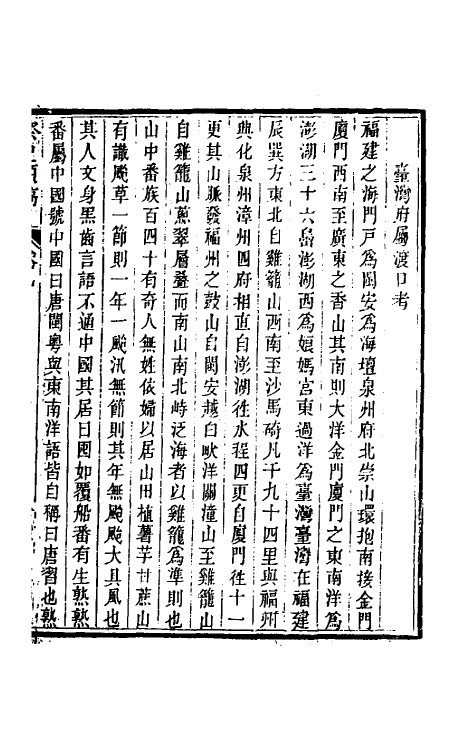 臺灣府屬渡口考
福建之海門戶爲閩安爲海壇泉州府北崇山環抱南接金門
廈門西南至廣東之香山其南則大洋金門廈門之東南洋爲
澎湖三十六島澎湖西爲娘媽宮東過洋爲臺灣臺灣在福建
辰巽方東北自雞籠山西南至沙馬碕凡千九十四里與福州
興化泉州漳州四府相直自澎湖往水程四更自廈門往十一
更其山脈發福州之鼓山自閩安越白畎洋關潼山至雞籠山
自雞籠山蔥翠層疊而南山南北峙泛海者以雞籠爲準則也
山中番族百四十有奇人無姓依婦以居山田植薯芋甘蔗山
有識颶草一節則一年一颶汛無節則其年無颶颶大具風也
其人文身黑齒言語不通中國其居曰囤如覆船番有生熟熟
番屬中國號中國曰唐閩粵與東南洋語皆自稱曰唐習也熟